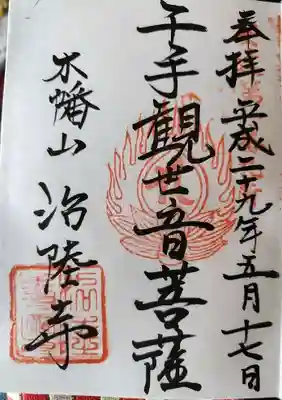 奉拝 平成二十九年五月十七日
千手觀世音菩薩
木幡山 治陸寺